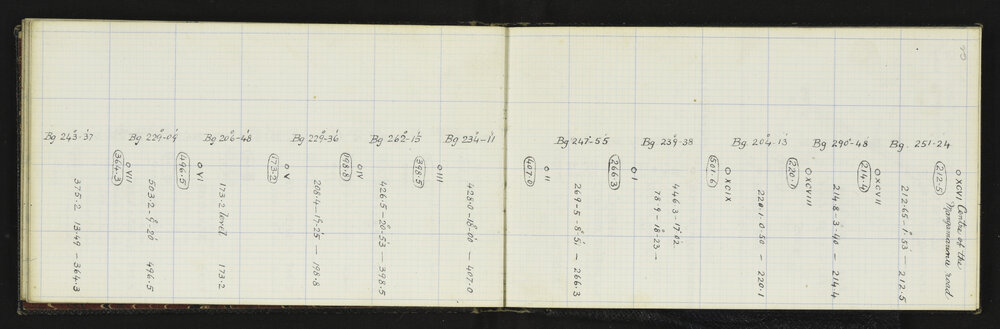 Bg 243°-37'
Bg 229°-04'
Bg 206°-48'
Bg 229°-36'
Bg 262°-15'
Bg 234°-11'
364.3
o VII
375.2 13.49 – 364.3
496.5
o VI
503.2 – 9°.20' 496.5
173.2
o V
173.2 level 173.2
198.8
o IV
208.4 – 17°.25' — 198.8
398.5
o III
426.5 – 20°.53' – 398.5
428.0 – 18°.00' — 407.0
Bg 247°-55'
Bg 239°-38
Bg 204°-13'
Bg 290°-48
Bg. 251-24
407.0
o II
269.5 – 8°.5' – 266.3
266.3
o I
446.3 – 17°.02'
78.9 – 18°.23 –
501.6
o XCIX
220.1 – 0.50 – 220.1
220.1
o XCVIII
214.8 – 3°.40 – 214.4
214.4
o XCVII
212.65 – 1°.53' — 212.5
212.5
o XCVI Centre of the
road